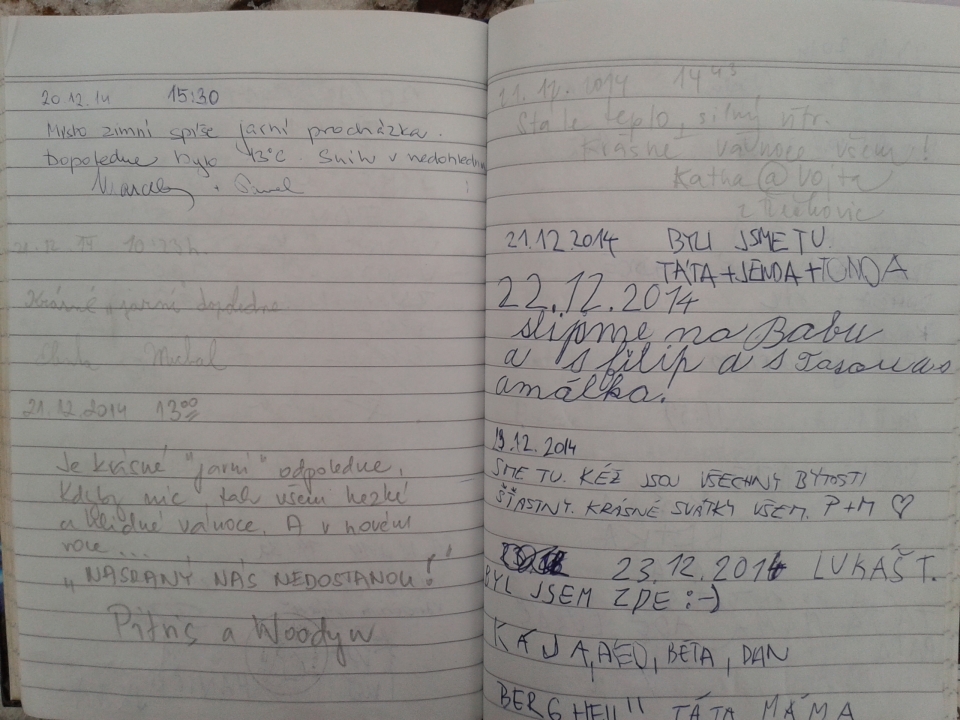 20.12.14 15:30
Místo zimní spíše jarní procházka.
Dopoledne bylo 13°C. Sníh v nedohlednu
21.12.14 10
Krásné jarní dopoledne
Michal
21.12.2014 13⁰⁰
Je krásné "jarní" odpoledne.
Kdyby nic tak všem hezké
a klidné vánoce. A v novém
roce...
"NASRANÝ NÁS NEDOSTANOU!"
Pitris a Woodyw
21.12.2014 14⁴³
Stále teplo, silný vítr.
Krásné vánoce všem!
Katha @ Vojta
z
21.12 2014 BYLI JSME TU.
TÁTA+JENDA+TONDA
22.12.2014
slipme na Babu
a s filip a s
amálka.
19.12.2014
SME TU. KÉŽ JSOU VŠECHNY BYTOSTI
ŠŤASTNY. KRÁSNÉ SVÁTKY VŠEM. P+M ♡
23.12.2014 LUKÁŠ T.
BYL JSEM ZDE :-)
KÁJA, BÉTA, DAN
BERG HEIL" TÁTA MÁMA